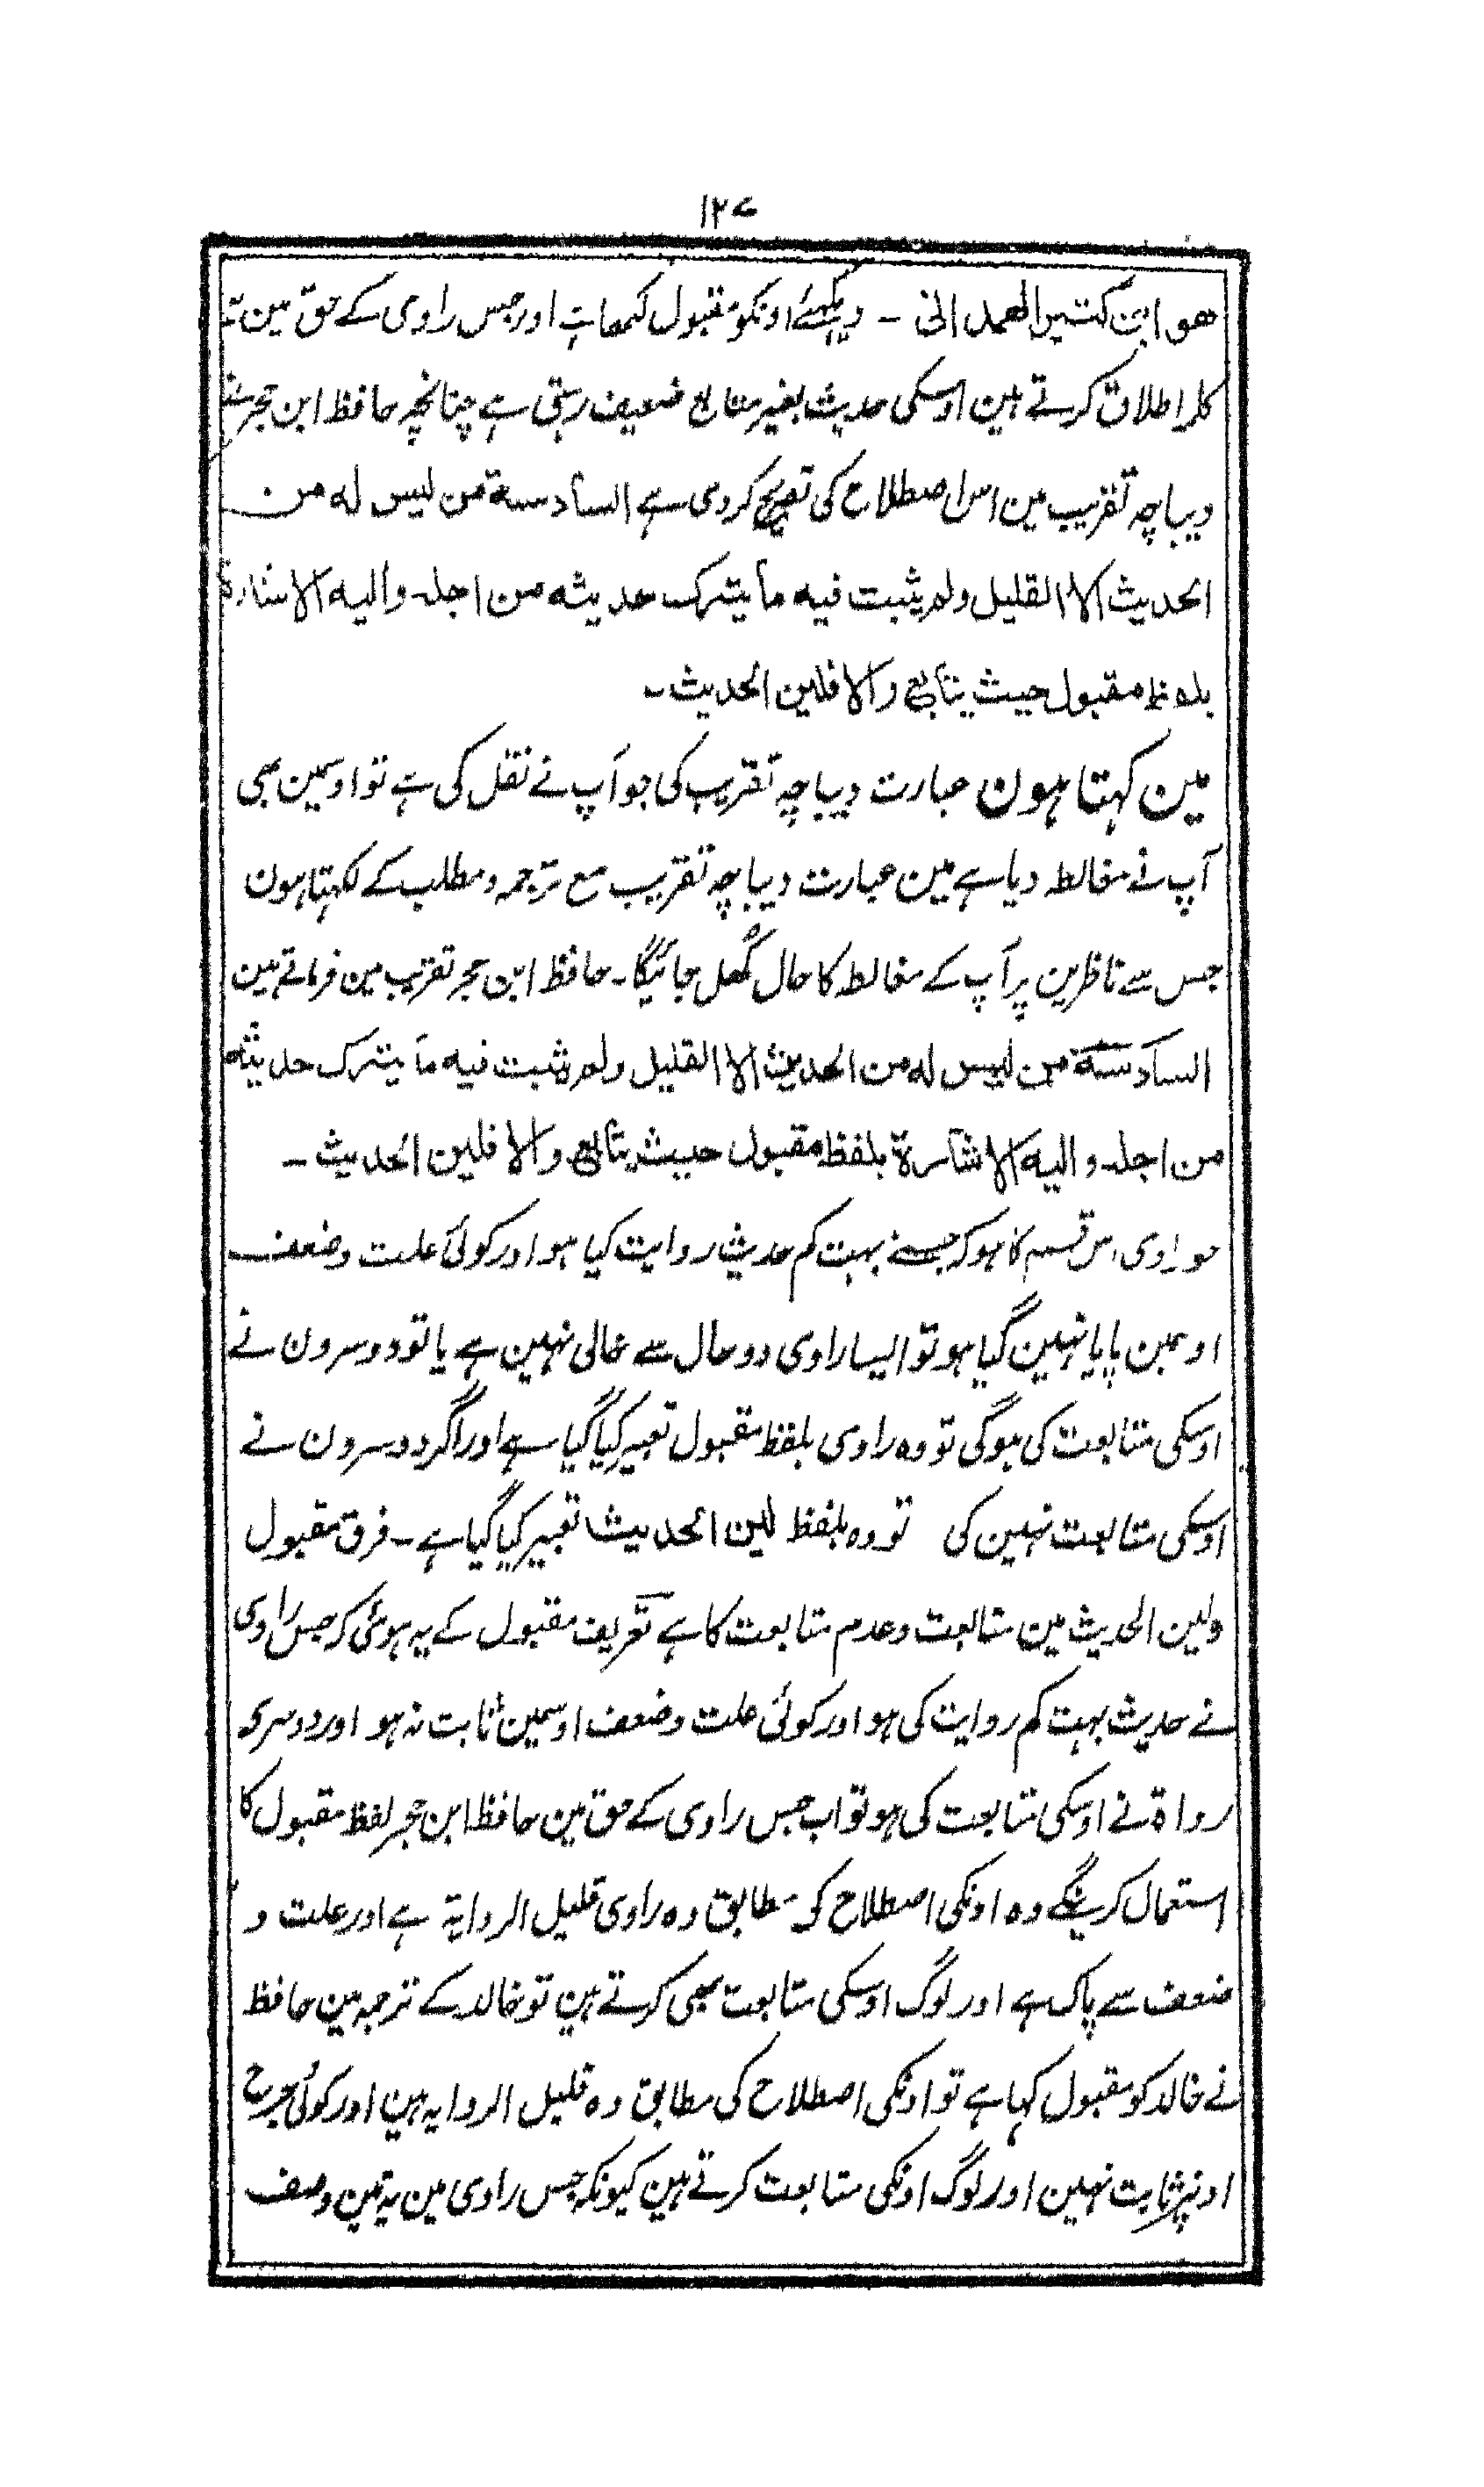 ۱۲۷
هو ابن كثير الهمدانى - دیکہئے اونکو مقبول لکھا ہے اور جس راوی کے حق مین
کلمہ اطلاق کرتے ہین اوسکی حدیث بغیر متابع ضعیف رہتی ہے چنانچہ حافظ ابن حجر نے
دیباچہ تقریب مین اس اصطلاح کی تصریح کردی ہے السادسة من ليس له من
الحديث الا القليل ولم يثبت فيه ما يترك حديثه من اجله واليه الاشارة
بلفظ مقبول حيث يتابع والا فلين الحديث-
مین کہتا ہون عبارت دیباچہ تقریب کی جو آپ نے نقل کی ہے تو اوسمین بھی
آپ نے مغالطہ دیا ہے مین عبارت دیباچہ تقریب مع ترجمہ و مطلب کے لکھتا ہون
جس سے ناظرین پر آپ کے مغالطہ کا حال کُھل جائیگا۔ حافظ ابن حجر تقریب مین فرماتے ہین
السادسة من ليس له من الحديث الا القليل ولم يثبت فيه ما يترك حديثه
من اجله واليه الاشارة بلفظ مقبول حيث يتابع والا فلين الحديث-
جو راوی اس قسم کا ہو کہ جسنے بہت کم حدیث روایت کیا ہو اور کوئی علت وضعف
اوسمین پایا نہین گیا ہو تو ایسا راوی دو حال سے خالی نہین ہے یا تو دوسرون نے
اوسکی متابعت کی ہوگی تو وہ راوی بلفظ مقبول تعبیر کیا گیا ہے اور اگر دوسرون نے
اوسکی متابعت نہین کی تو وہ بلفظ لین الحدیث تعبیر کیا گیا ہے۔ فرق مقبول
ولین الحدیث مین متابعت وعدم متابعت کا ہے تعریف مقبول کے یہ ہوئی کہ جس راوی
نے حدیث بہت کم روایت کی ہو اور کوئی علت وضعف اوسمین ثابت نہ ہو اور دوسری
رواة نے اوسکی متابعت کی ہو تو اب جس راوی کے حق مین حافظ ابن حجر لفظ مقبول کا
استعمال کرینگے وہ اونکی اصطلاح کے مطابق وہ راوی قلیل الروایة ہے اور علت و
ضعف سے پاک ہے اور لوگ اوسکی متابعت بھی کرتے ہین تو خالد کے ترجمہ مین حافظ
نے خالد کو مقبول کہا ہے تو اونکی اصطلاح کی مطابق وہ قلیل الروایہ ہین اور کوئی جرح
اونپر ثابت نہین اور لوگ اونکی متابعت کرتے ہین کیونکہ جس راوی مین یہ تین وصف